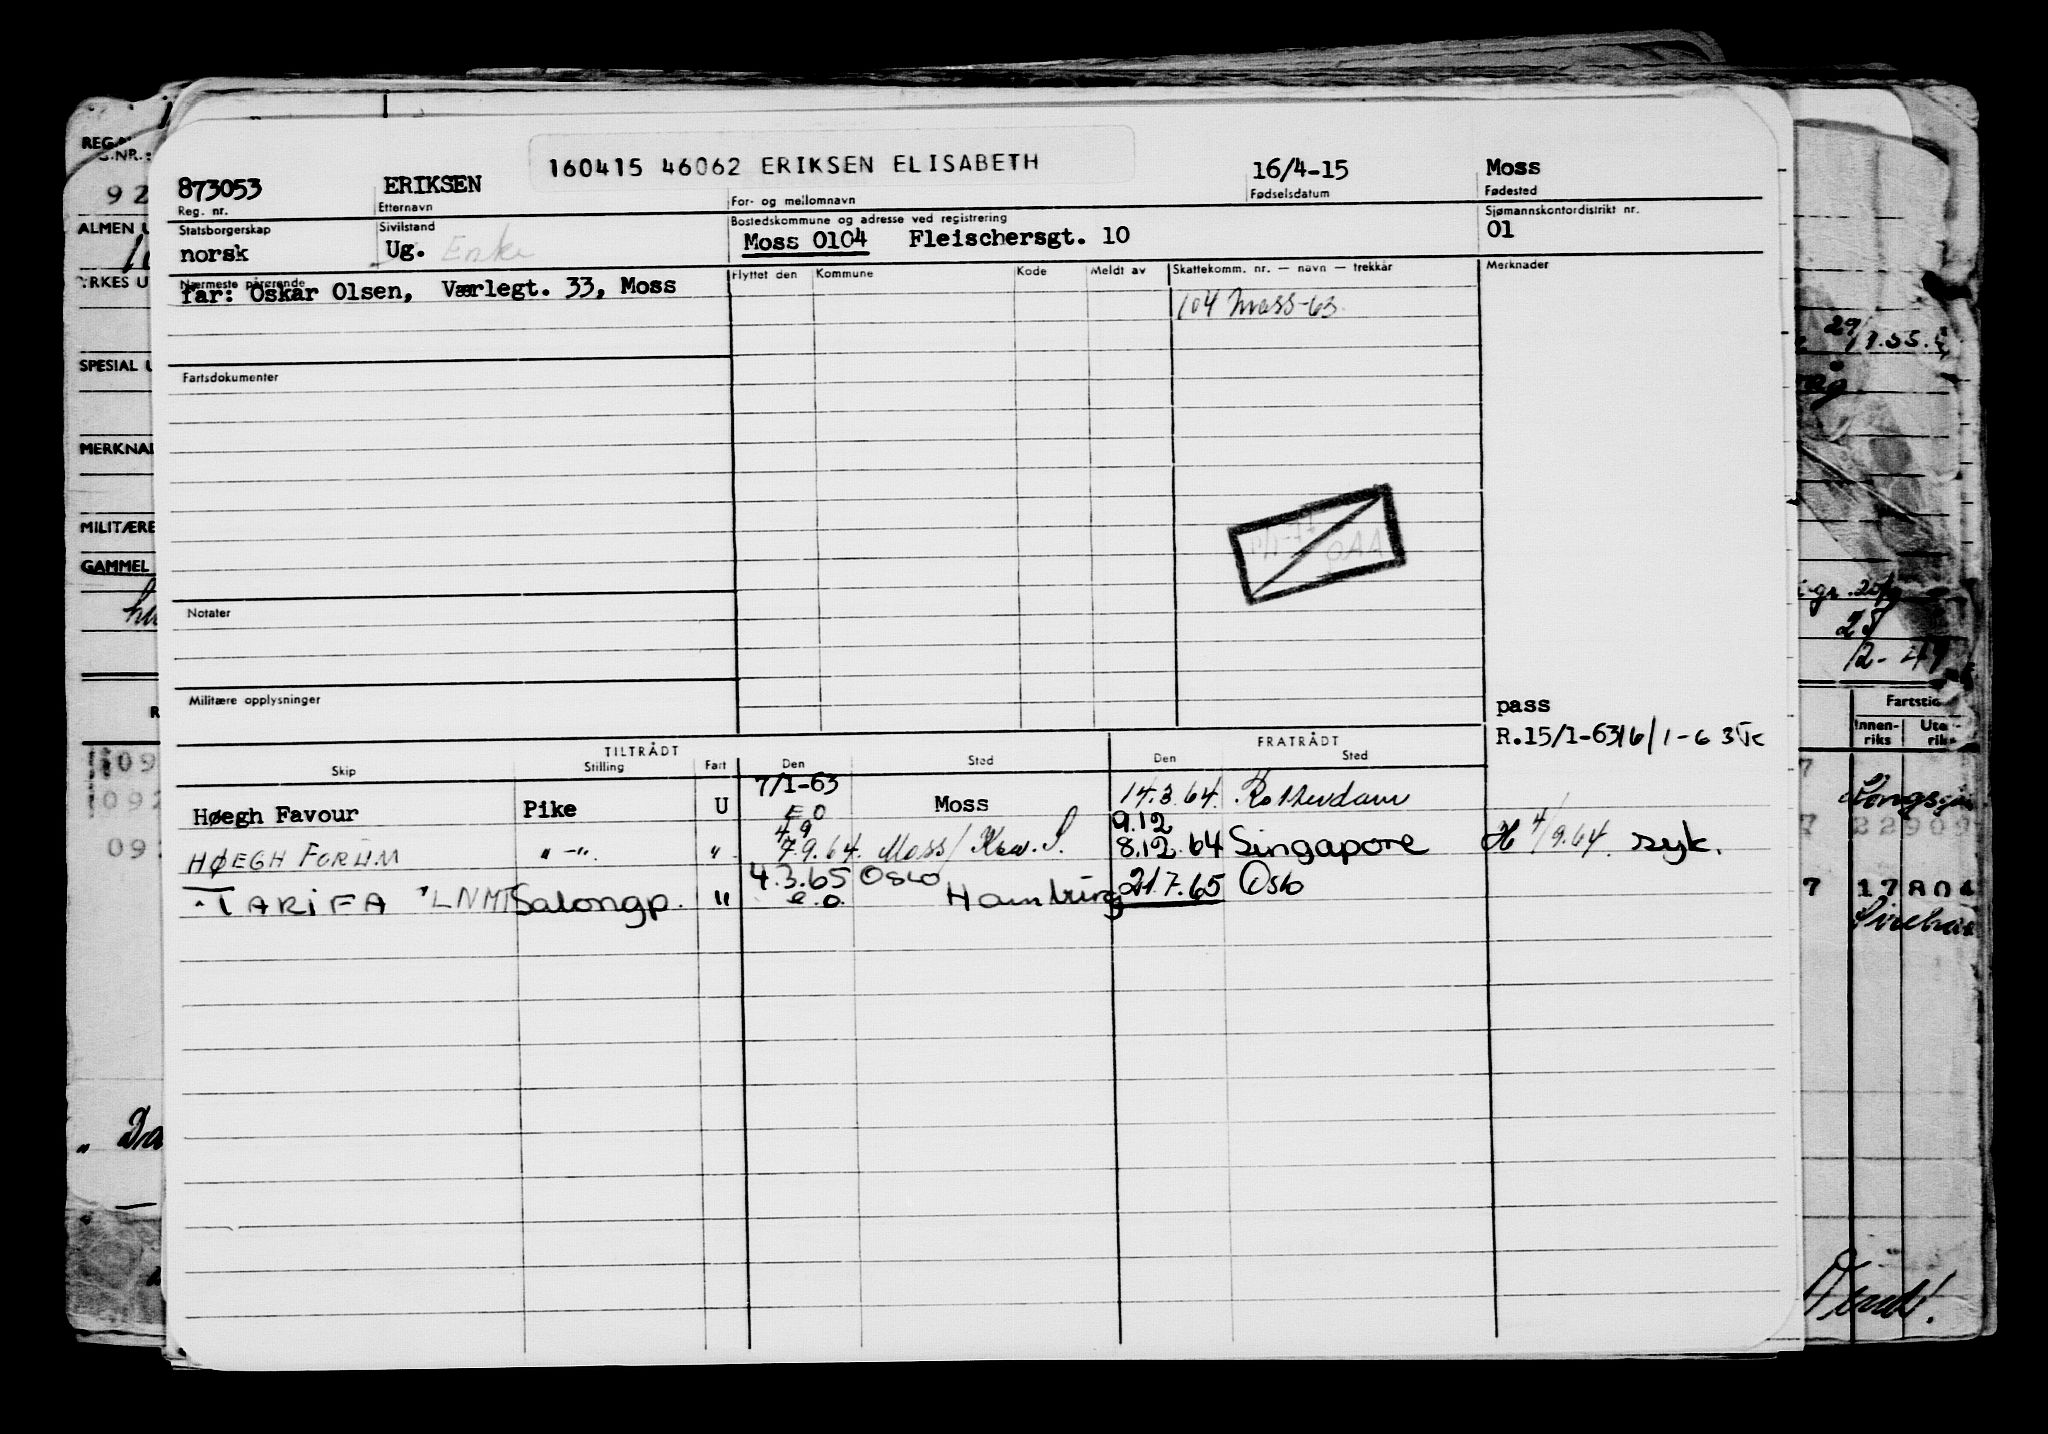 160415 46062 ERIKSEN ELISABETH
873053 ERIKSEN 16/4-15 Moss
Reg. nr. Etternavn For- og mellomnavn Fødselsdatum Fødested
Statsborgerskap Sivilstand Bostedskommune og adresse ved registrering Sjømannskontordistrikt nr.
norsk Ug. Enke Moss 0104 Fleischersgt. 10 01
Nærmeste pårørende Flyttet den Kommune Kode Meldt av Skattekomm. nr. — navn — trekkår Merknader
far: Oskar Olsen, Værlegt. 33, Moss
104 Moss-63
Fartsdokumenter
Notater
Militære opplysninger
pass
R.15/1-63 16/1-63
TILTRÅDT FRATRÅDT
Skip Stilling Fart Den Sted Den Sted
7/1-63
Høegh Favour Pike U E O Moss 14.3.64. Rotterdam
4.9 9.12
HØEGH FORUM " -". " 7.9.64. Moss/ Kr.S. 8.12.64 Singapore 4/9.64. syk.
4.3.65 Oslo
TARIFA LNMT Salongp. " e.o. Hamburg 21.7.65 Oslo
REG.NR.:
92
ALMEN U
YRKES U
SPESIAL U
MERKNAD
MILITÆRE
GAMMEL
092
092
29/1.55.
25
12-47
Fartstid
Innen-riks Uten-riks
22909
7 17804